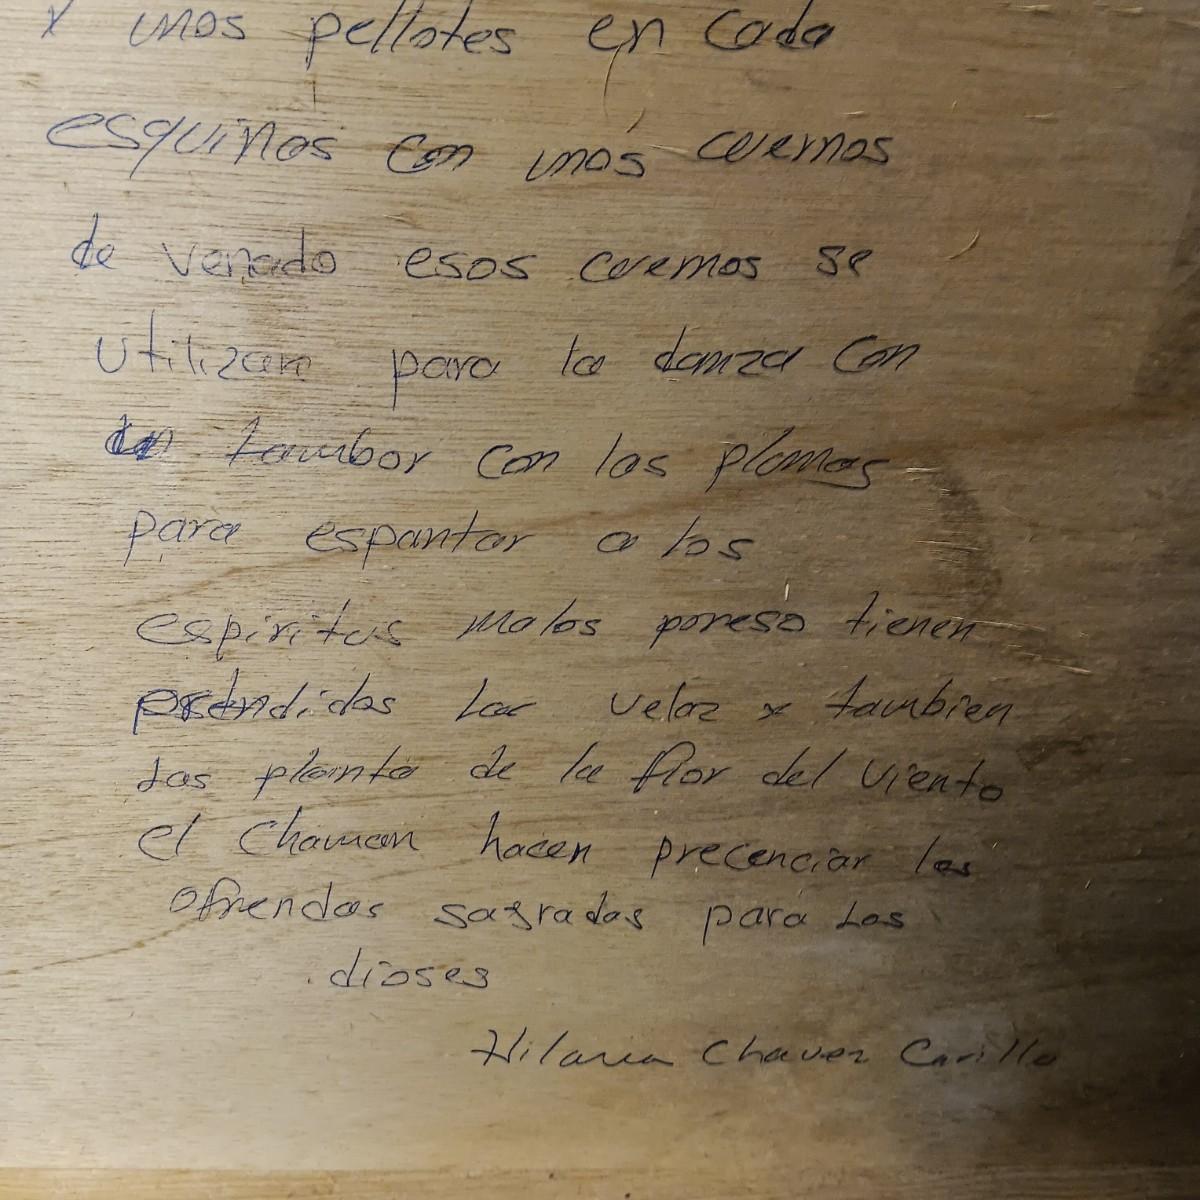 y unos pellotes en cada
esquinas con unos cuernos
de venado esos cuernos se
utilizan para la danza con
un tambor con las plumas
para espantar a los
espiritus malos poreso tienen
prendidas las velaz y tambien
las planta de la flor del viento
el chaman hacen precenciar las
ofrendas sagradas para los
dioses
Hilaria Chavez Carillo